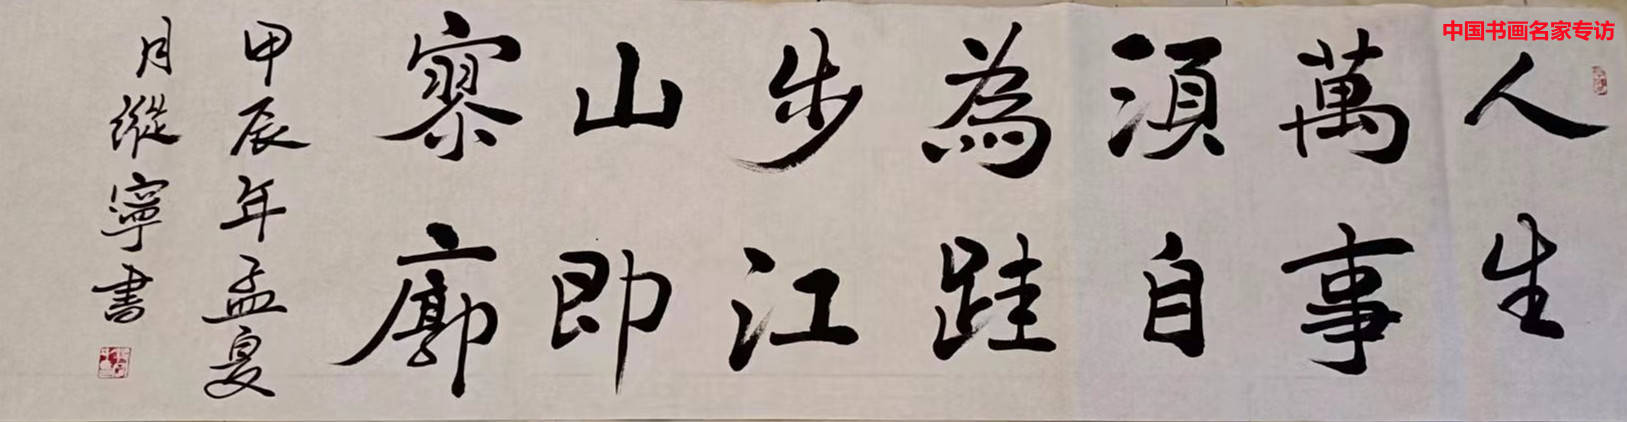 中国书画名家专访
人生
萬事
須自
為跬
步江
山即
寥廓
甲辰年孟夏
月縱寧書